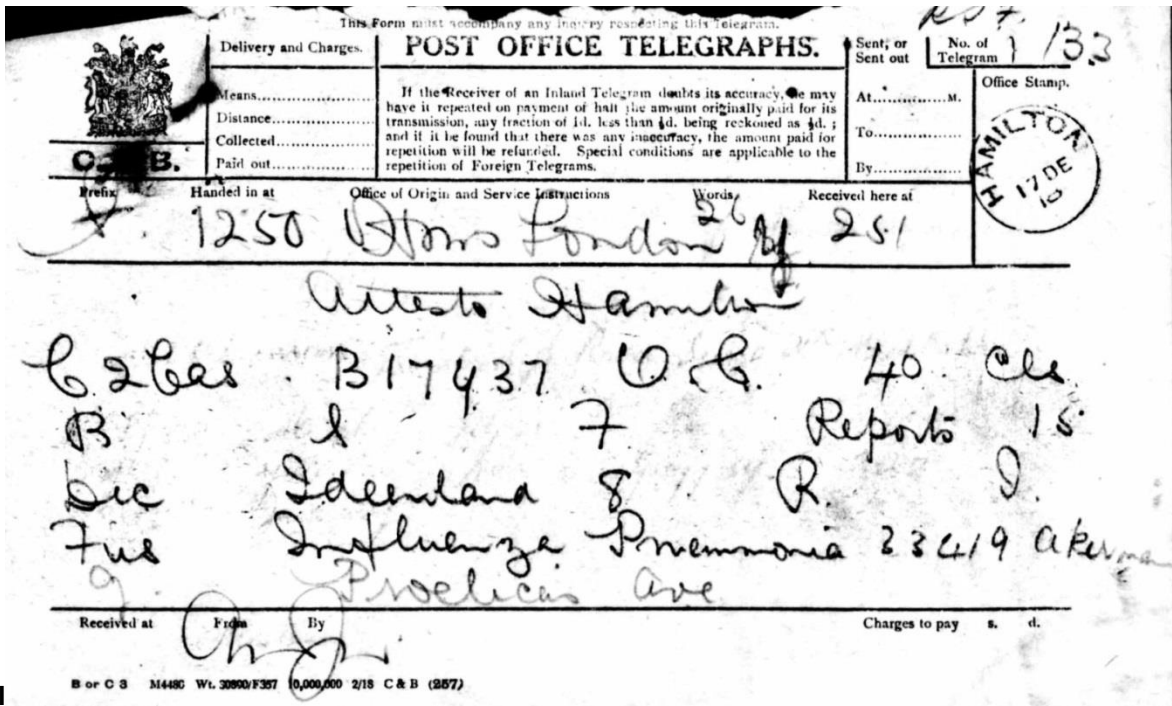 This Form must accompany any inquiry respecting this Telegram.
Delivery and Charges.
POST OFFICE TELEGRAPHS.
Sent, or Sent out
No. of Telegram
133
Means
Distance
Collected
Paid out
If the Receiver of an Inland Telegram doubts its accuracy, he may
have it repeated on payment of half the amount originally paid for its
transmission, any fraction of 1d. less than ½d. being reckoned as ½d. ;
and if it be found that there was any inaccuracy, the amount paid for
repetition will be refunded. Special conditions are applicable to the
repetition of Foreign Telegrams.
At M.
To
By
Office Stamp.
HAMILTON
17 DE
B.
Prefix Handed in at Office of Origin and Service Instructions Words Received here at
1250 London 26 251
Hamilton
C2 Cas B17437 O.C. 40 Cls
B 7 Reports 15
Dec 8 R. I.
Fus Influenza Pneumonia 33419 Akerman
Ave
Received at From By Charges to pay s. d.
B or C 3 M4486 Wt. 30800/F357 10,000,000 2/18 C & B (257)